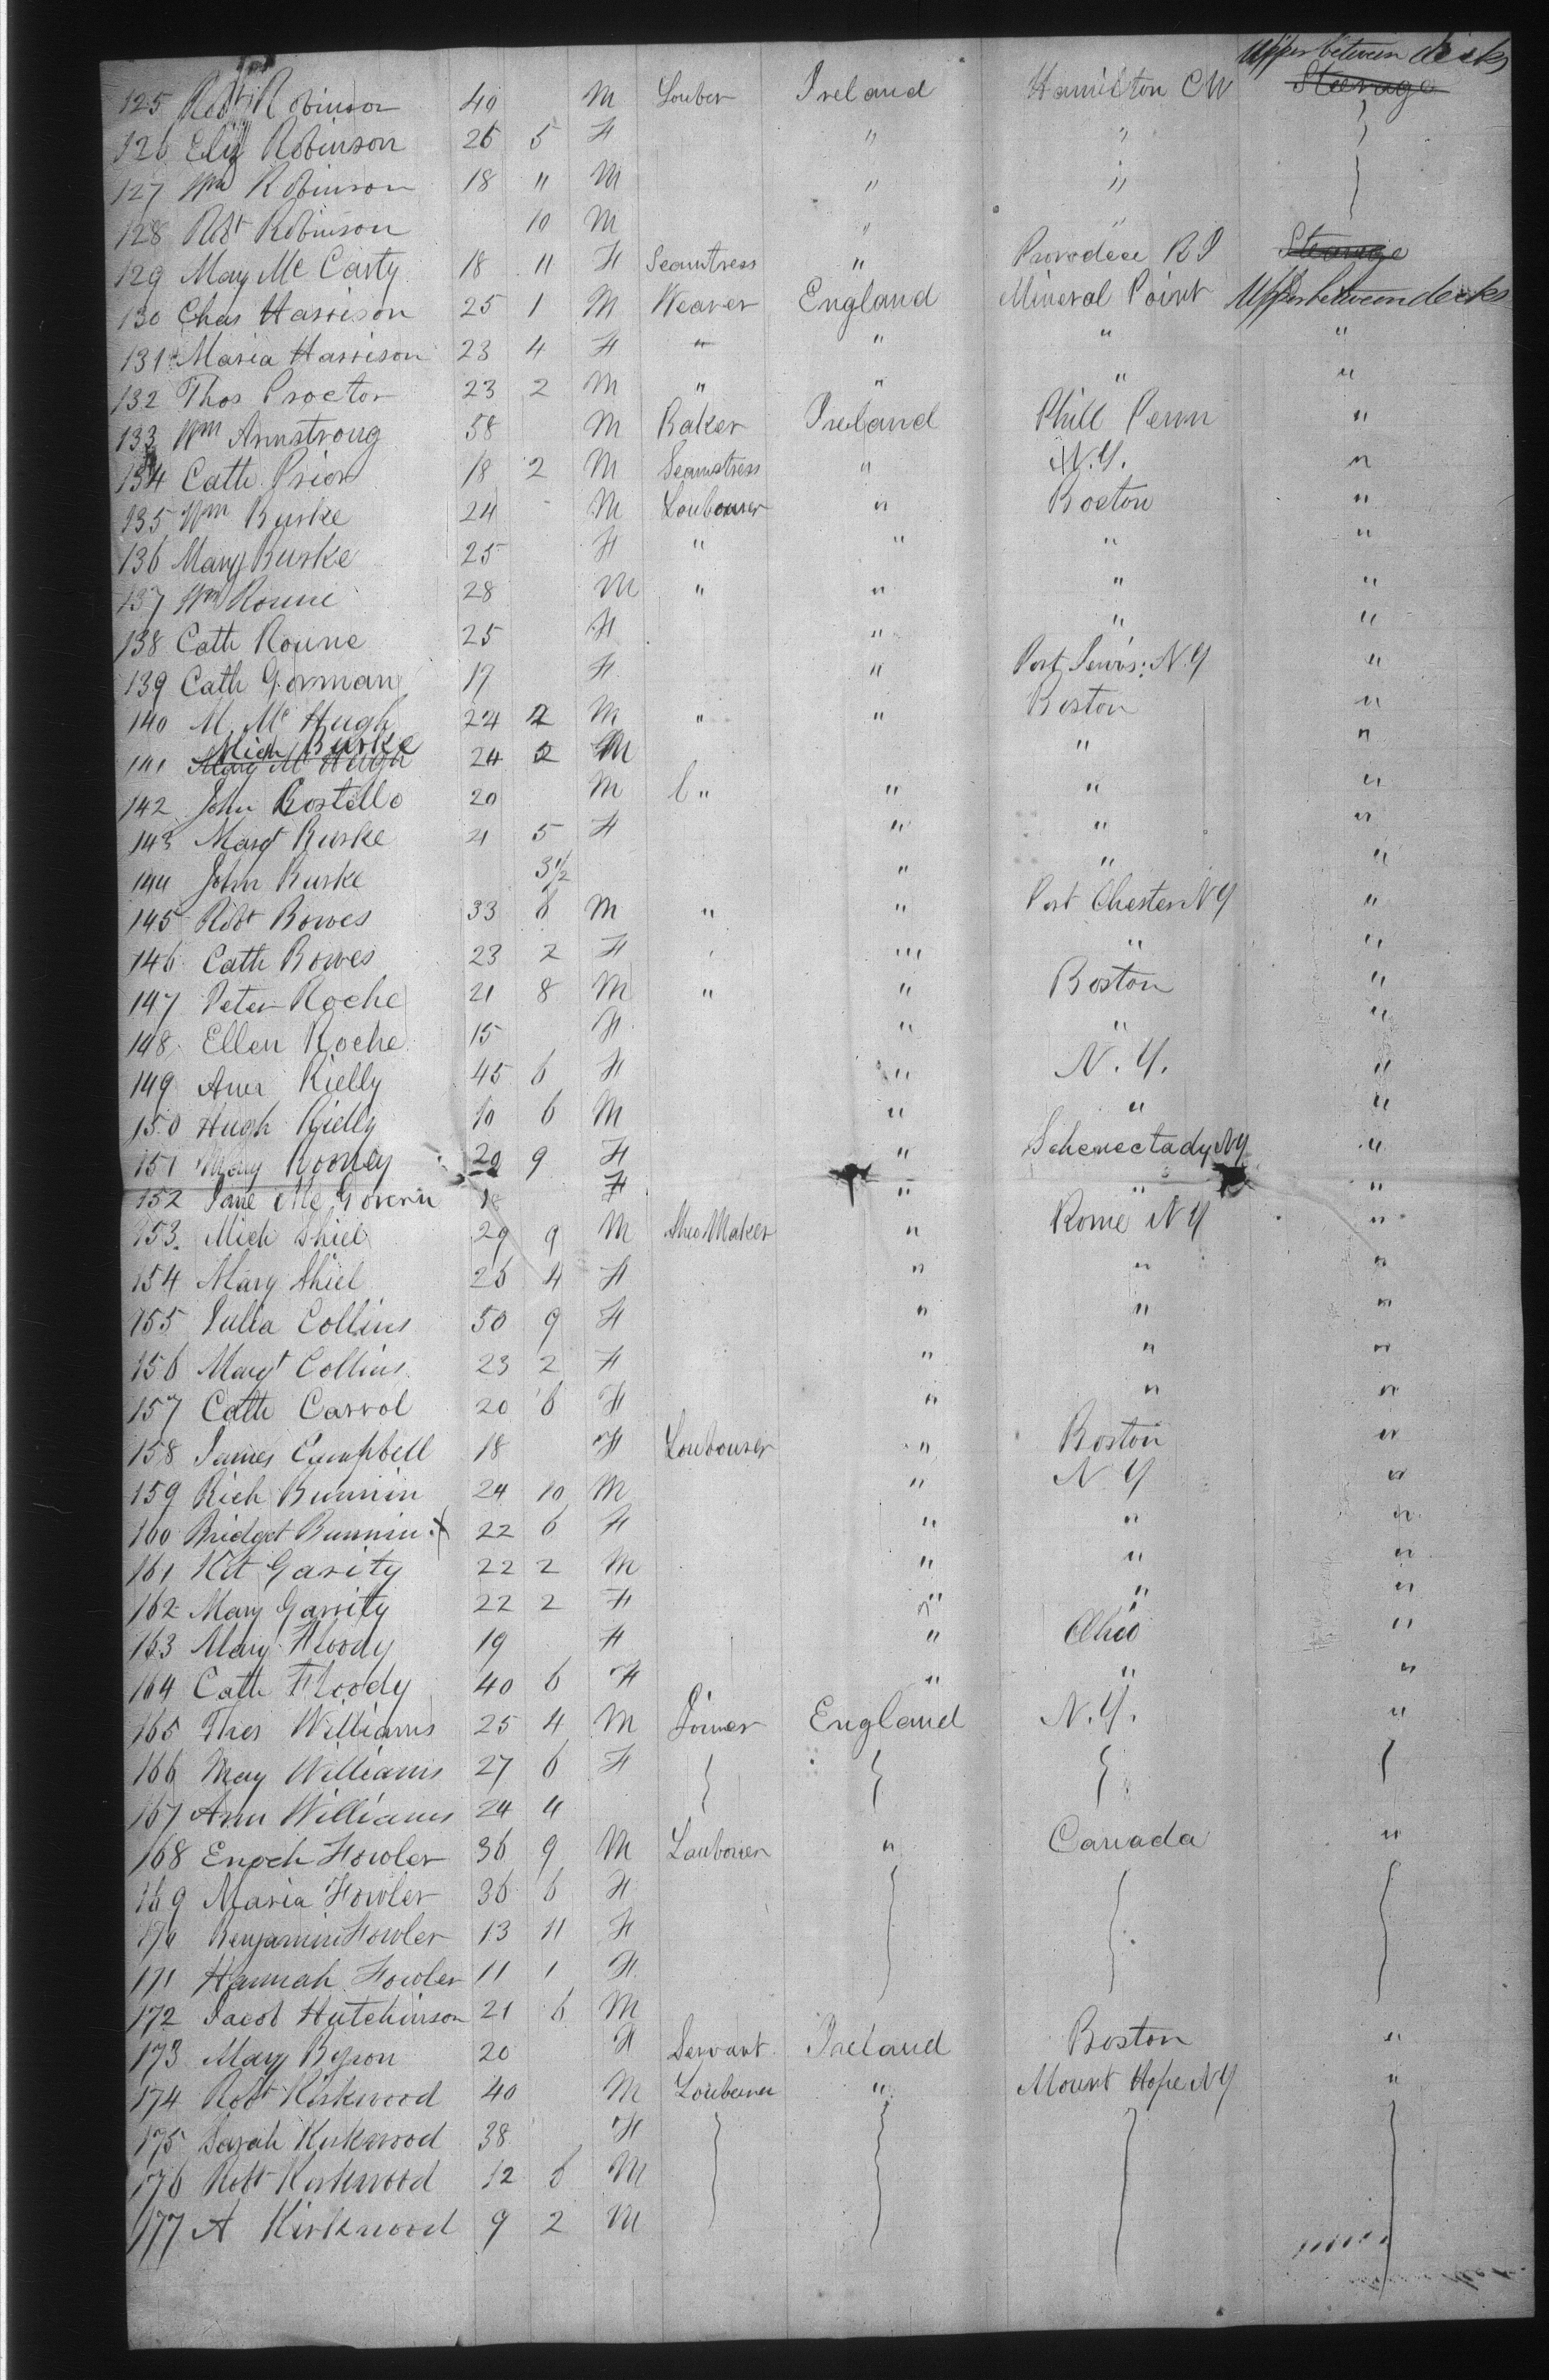 Upper between decks
125 Robt Robinson 40 M Louber Ireland Hamilton CW Steerage
126 Eliz Robinson 26 5 F " "
127 Wm Robinson 18 " M " "
128 Robt Robinson 10 M " "
129 Mary Mc Carty 18 11 F Seamtress " Provodece R I Steerage
130 Chas Harrison 25 1 M Weaver England Mineral Point Upper between decks
131 Maria Harrison 23 4 F " " " "
132 Thos Proctor 23 2 M " " " "
133 Wm Armstrong 58 M Baker Ireland Phill Penn "
134 Cath Prior 18 2 M Seamstress " N.Y. "
135 Wm Burke 24 - M Loubourer " Boston "
136 Mary Burke 25 F " " " "
137 Wm Rourie 28 M " " " "
138 Cath Roune 25 F " " "
139 Cath Gorman 17 F " Port Jervis: N.Y "
140 M. Mc Hugh 24 2 M " " Boston "
141 Mary Mc Hugh Mich Burke 24 2 M " "
142 John Costello 20 M L " " " "
143 Margt Burke 21 5 F " " "
144 John Burke 3 1/2 " " "
145 Robt Bowes 33 6 M " " Port Chester N Y "
146 Cath Bowes 23 2 F " " "
147 Peter Roche 21 8 M " " Boston "
148 Ellen Roche 15 F " " "
149 Ann Rielly 45 6 F " N. Y. "
150 Hugh Rielly 10 6 M " " "
151 Mary Rooney 20 9 F " Schenectady NY "
152 Jane Mc Govern 18 F " " "
153 Mich Shiel 29 9 M Shoe Maker " Rome N Y "
154 Mary Shiel 26 4 F " " "
155 Julia Collins 50 9 F " " "
156 Margt Collins 23 2 F " " "
157 Cath Carrol 20 6 F " " "
158 James Campbell 18 F Loubourer " Boston "
159 Rich Bunnin 24 10 M " N Y "
160 Bridget Bunnin X 22 6 F " " "
161 Kit Garity 22 2 M " " "
162 Mary Garrity 22 2 F " " "
163 Mary Floody 19 F " Ohio "
164 Cath Floody 40 6 F " " "
165 Thos Williams 25 4 M Joiner England N.Y. "
166 May Williams 27 6 F
167 Ann Williams 24 4
168 Enoch Fowler 36 9 M Laubourer " Canada "
169 Maria Fowler 36 6 F
170 Benjamin Fowler 13 11 F
171 Hannah Fowler 11 1 F
172 Jacob Hutchinson 21 6 M
173 Mary Byron 20 F Servant Ireland Boston "
174 Robt Kirkwood 40 M Loubourer " Mount Hope NY "
175 Sarah Kirkwood 38 F
176 Robt Kirkwood 12 6 M
177 A Kirkwood 9 2 M